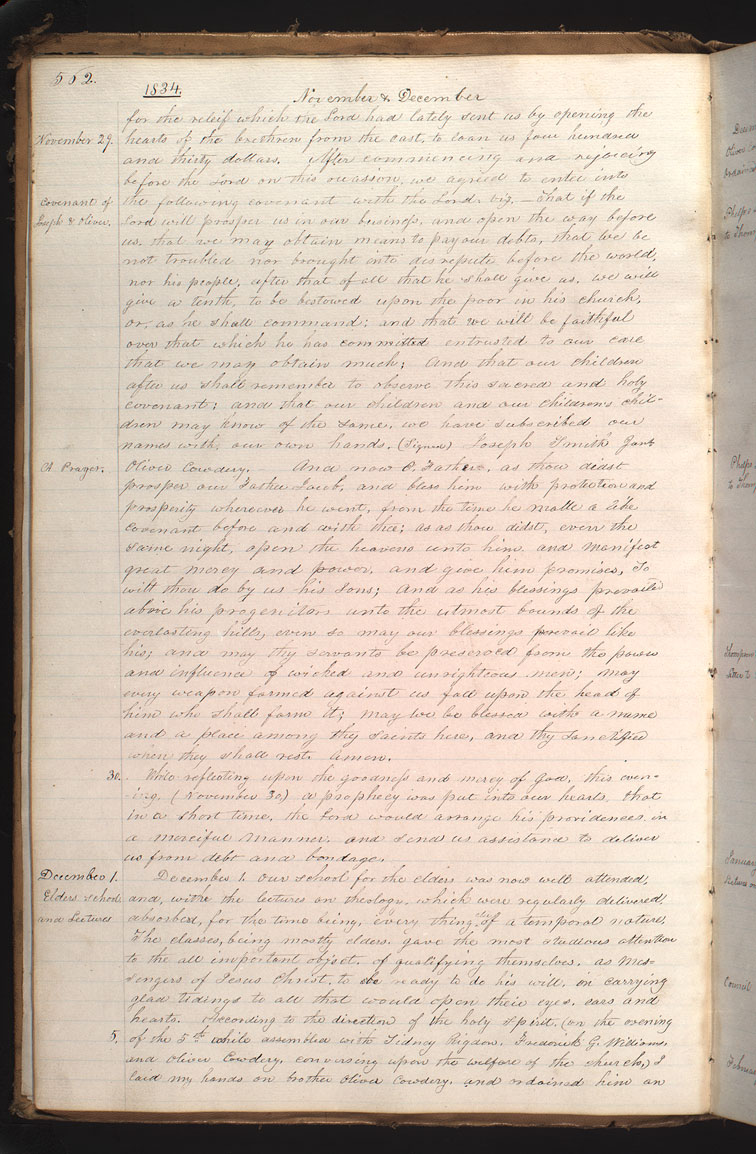 562.
1834.
November & December
for the releif which the Lord had lately sent us by opening the
November 29. hearts of the brethren from the east, to loan us four hundred
and thirty dollars. After commencing and rejoicing
before the Lord on this occasion, we agreed to enter into
Covenant of the following covenant with the Lord. viz. — That if the
Joseph & Oliver. Lord will prosper us in our business, and open the way before
us, that we may obtain means to pay our debts, that we be
not troubled nor brought into disrepute before the world,
nor his people, after that of all that he shall give us, we will
give a tenth, to be bestowed upon the poor in his church,
or, as he shall command; and that we will be faithful
over that which he has committed entrusted to our care
that we may obtain much; and that our children
after us shall remember to observe this sacred and holy
covenant; and that our children and our children's chil-
dren may know of the same, we have subscribed our
names with our own hands. (Signed) Joseph Smith Jun.r
A Prayer. Oliver Cowdery. — And now O, Father, as thou didst
prosper our Father Jacob, and bless him with protection and
prosperity wherever he went, from the time he made a like
covenant before and with thee; as as thou didst, even the
same night, open the heavens unto him and manifest
great mercy and power, and give him promises, So
wilt thou do by us his sons; and as his blessings prevailed
above his progenitors unto the utmost bounds of the
everlasting hills, even so may our blessings prevail like
his; and may thy servants be preserved from the power
and influence of wicked and unrighteous men; may
every weapon formed against us fall upon the head of
him who shall form it; may we be blessed with a name
and a place among thy saints here, and thy sanctified
when they shall rest. Amen.
30. While reflecting upon the goodness and mercy of God, this even-
ing, (November 30) a prophecy was put into our hearts, that
in a short time, the Lord would arrange his providences in
a merciful manner, and send us assistance to deliver
us from debt and bondage.
December 1. December 1. Our school for the elders was now well attended,
Elders school and, withe the lectures on theology, which were regularly delivered,
and Lectures absorbed, for the time being, every thing else of a temporal nature.
The classes, being mostly elders, gave the most studious attention
to the all important object, of qualifying themselves, as mes-
sengers of Jesus Christ, to be ready to do his will, in carrying
glad tidings to all that would open their eyes, ears and
hearts. According to the direction of the holy spirit, (on the evening
5. of the 5th while assembled with Sidney Rigdon, Frederick G. Williams
and Oliver Cowdery, conversing upon the welfare of the church,) I
laid my hands on brother Oliver Cowdery, and ordained him an
Phelps
Council